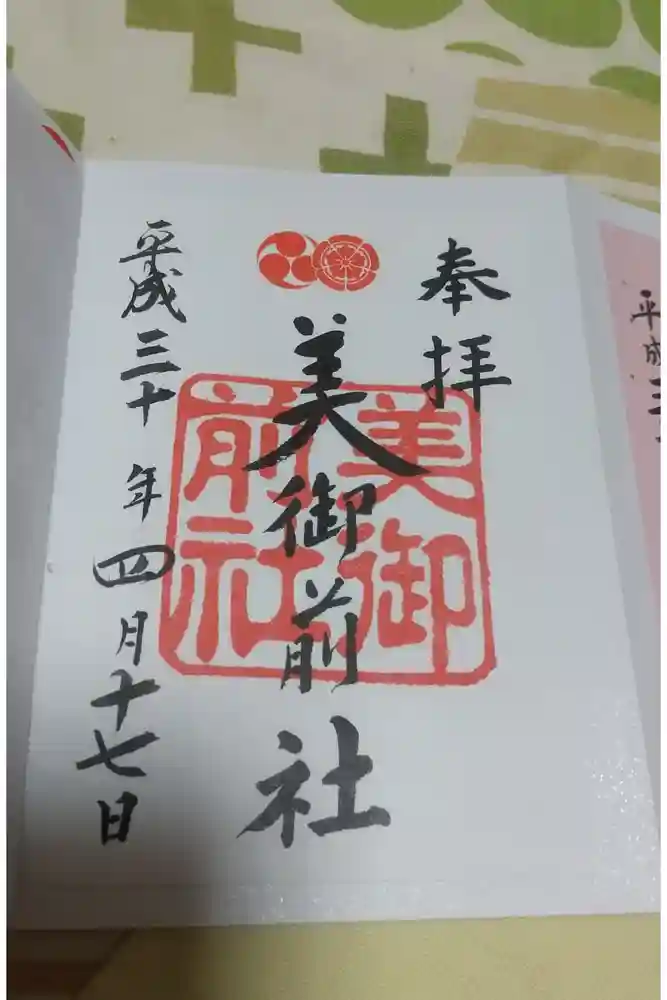 奉拝
美御前社
美御前社
平成三十年四月十七日
平成三